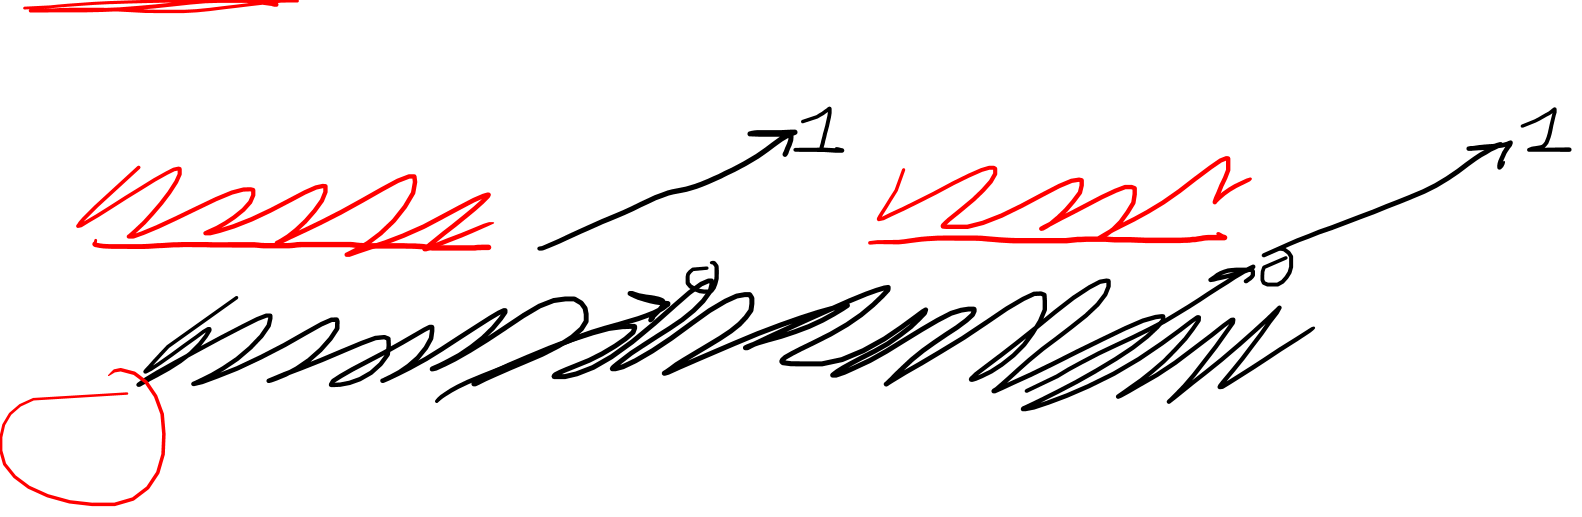 1 1
0 0